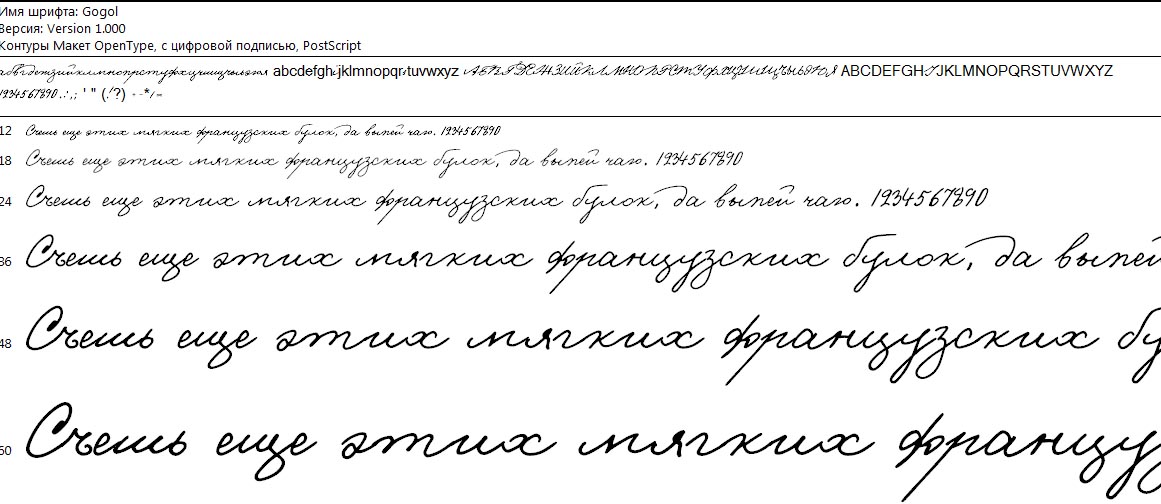 Имя шрифта: Gogol
Версия: Version 1.000
Контуры Макет OpenType, с цифровой подписью, PostScript
абвгдежзийклмнопрстуфхцчшщъыьэюя abcdefghijklmnopqrstuvwxyz АБВГДЕЖЗИЙКЛМНОПРСТУФХЦЧШЩЪЫЬЭЮЯ ABCDEFGHIJKLMNOPQRSTUVWXYZ
1234567890.:,; ' " (!?) +-*/=
12 Съешь еще этих мягких французских булок, да выпей чаю. 1234567890
18 Съешь еще этих мягких французских булок, да выпей чаю. 1234567890
24 Съешь еще этих мягких французских булок, да выпей чаю. 1234567890
36 Съешь еще этих мягких французских булок, да выпей
48 Съешь еще этих мягких французских бу
60 Съешь еще этих мягких францу